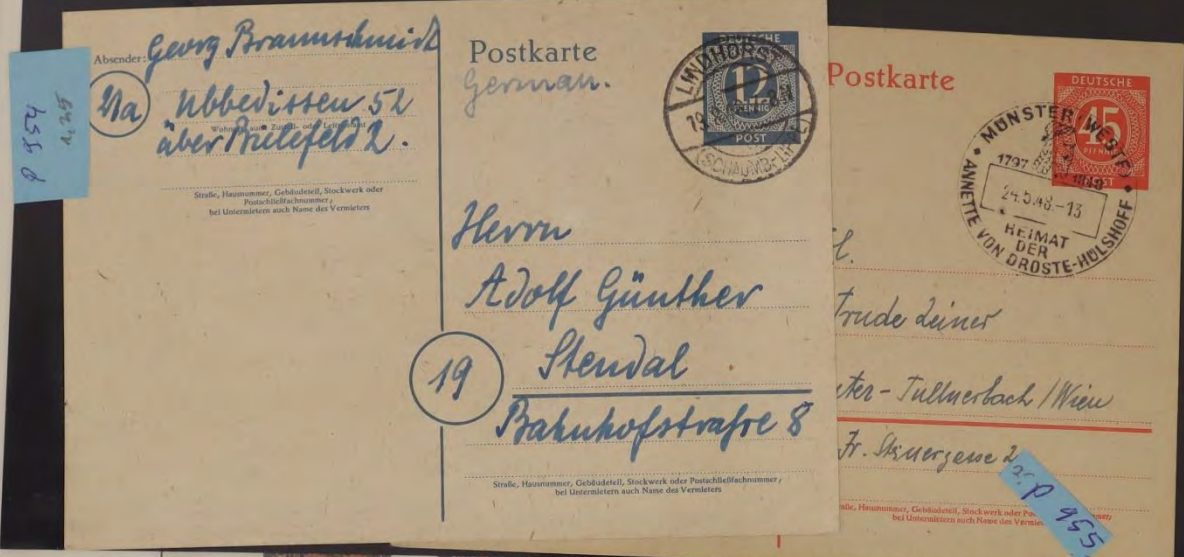 P 954
1.25
Absender: Georg Braunschmidt
21a
Ubbedissen 52
über Bielefeld 2.
Straße, Hausnummer, Gebäudeteil, Stockwerk oder
Postschließfachnummer;
bei Untermietern auch Name des Vermieters
Postkarte
German.
DEUTSCHE
12
PFENNIG
POST
LINDHORST
(SCHAUMB-LIPPE)
Herrn
Adolf Günther
19
Stendal
Bahnhofstraße 8
Straße, Hausnummer, Gebäudeteil, Stockwerk oder Postschließfachnummer;
bei Untermietern auch Name des Vermieters
Postkarte
DEUTSCHE
45
PFENNIG
POST
MÜNSTER (WESTF)
1797 1848
24.5.48.-13
HEIMAT
DER
ANNETTE VON DROSTE-HÜLSHOFF
Trude Leiner
Tullnerbach / Wien
2
P 955
Hausnummer, Gebäudeteil, Stockwerk oder
bei Untermietern auch Name des